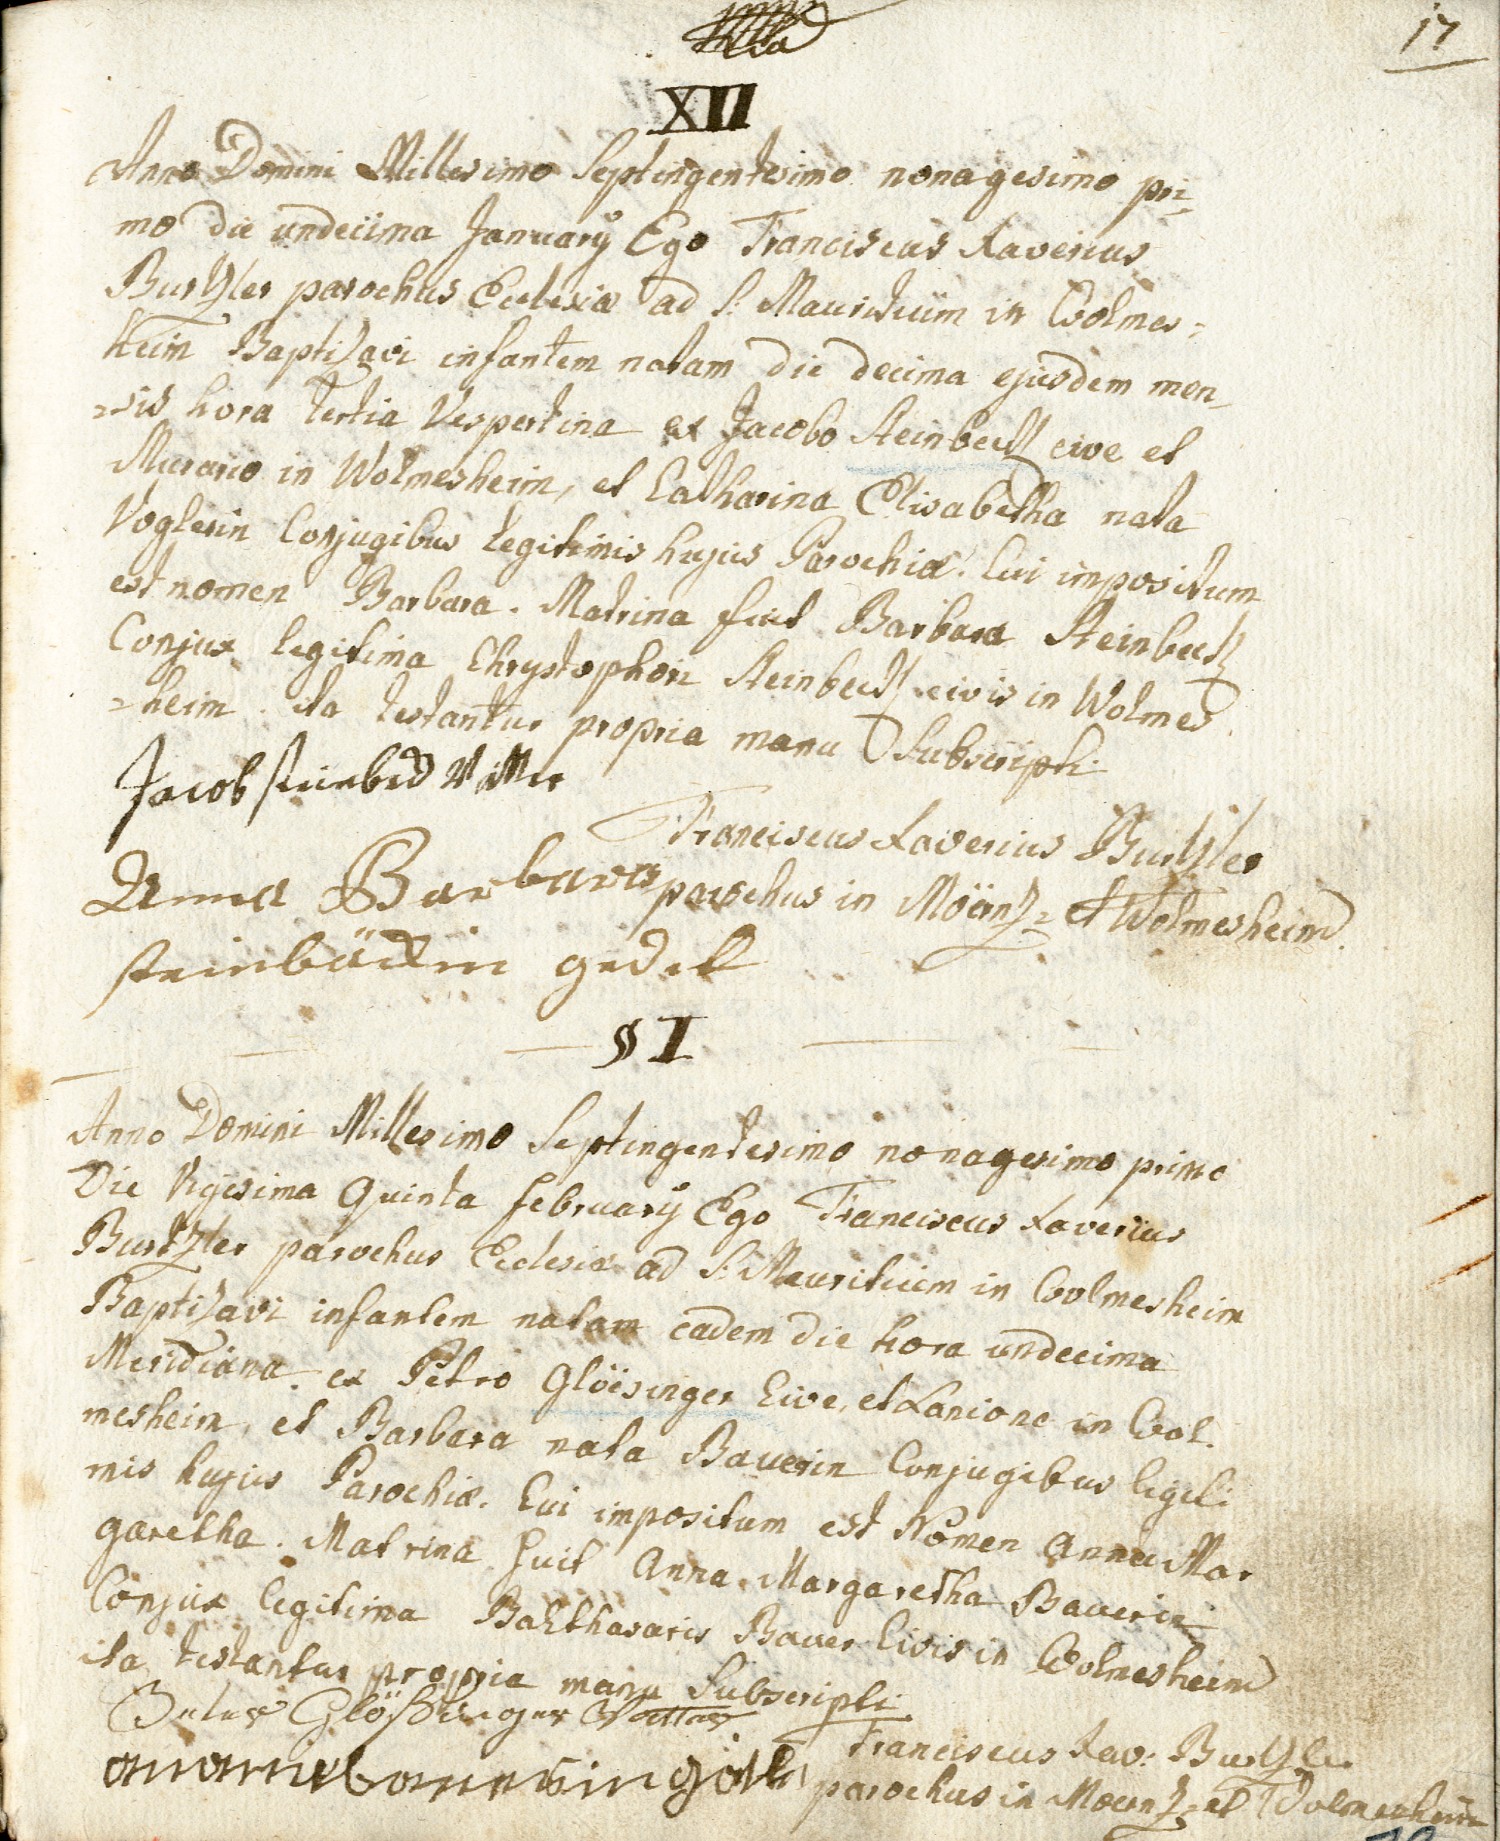 17
XII
Anno Domini Millesimo Septingentesimo nonagesimo pri=
mo die undecima January Ego Franciscus Xaverius
Burtzler parochus Ecclesiæ ad S. Mauritium in Wolmes=
heim Baptisavi infantem natam die decima ejusdem men=
=sis hora tertia Vespertina ex Jacobo Steinbeck cive et
Murario in Wolmesheim, et Catharina Elisabetha nata
Voglerin Conjugibus legitimis hujus Parochiæ. Cui impositum
est nomen Barbara. Matrina fuit Barbara Steinbeck
Conjux legitima Chrystophori Steinbeck civis in Wolmes
=heim. ita testantur propria manu Subscripti.
Jacob steinbeck Vatter
Franciscus Xaverius Burtzler
Anna Barbara parochus in Möernz= et Wolmesheim.
steinbäckin gedel
§ I
Anno Domini Millesimo Septingentesimo nonagesimo primo
Die Vigesima Quinta February Ego Franciscus Xaverius
Burtzler parochus Ecclesiæ ad S. Mauritium in Wolmesheim
Baptisavi infantem natam eadem die hora undecima
Meridiana. ex Petro Glöesinger Cive, et Lanione in Wol.
mesheim, et Barbara nata Bauerin Conjugibus legiti
mis hujus Parochiæ. Cui impositum est Nomen Anna Mar
garetha. Matrina fuit Anna Margaretha Bauerin
Conjux legitima Balthasaris Bauer Civis in Wolmesheim
ita testantur propria manu Subscripti.
Peter Glößinger Vatter
Franciscus Xav: Burtzler
parochus in Moernz= et Wolmesheim